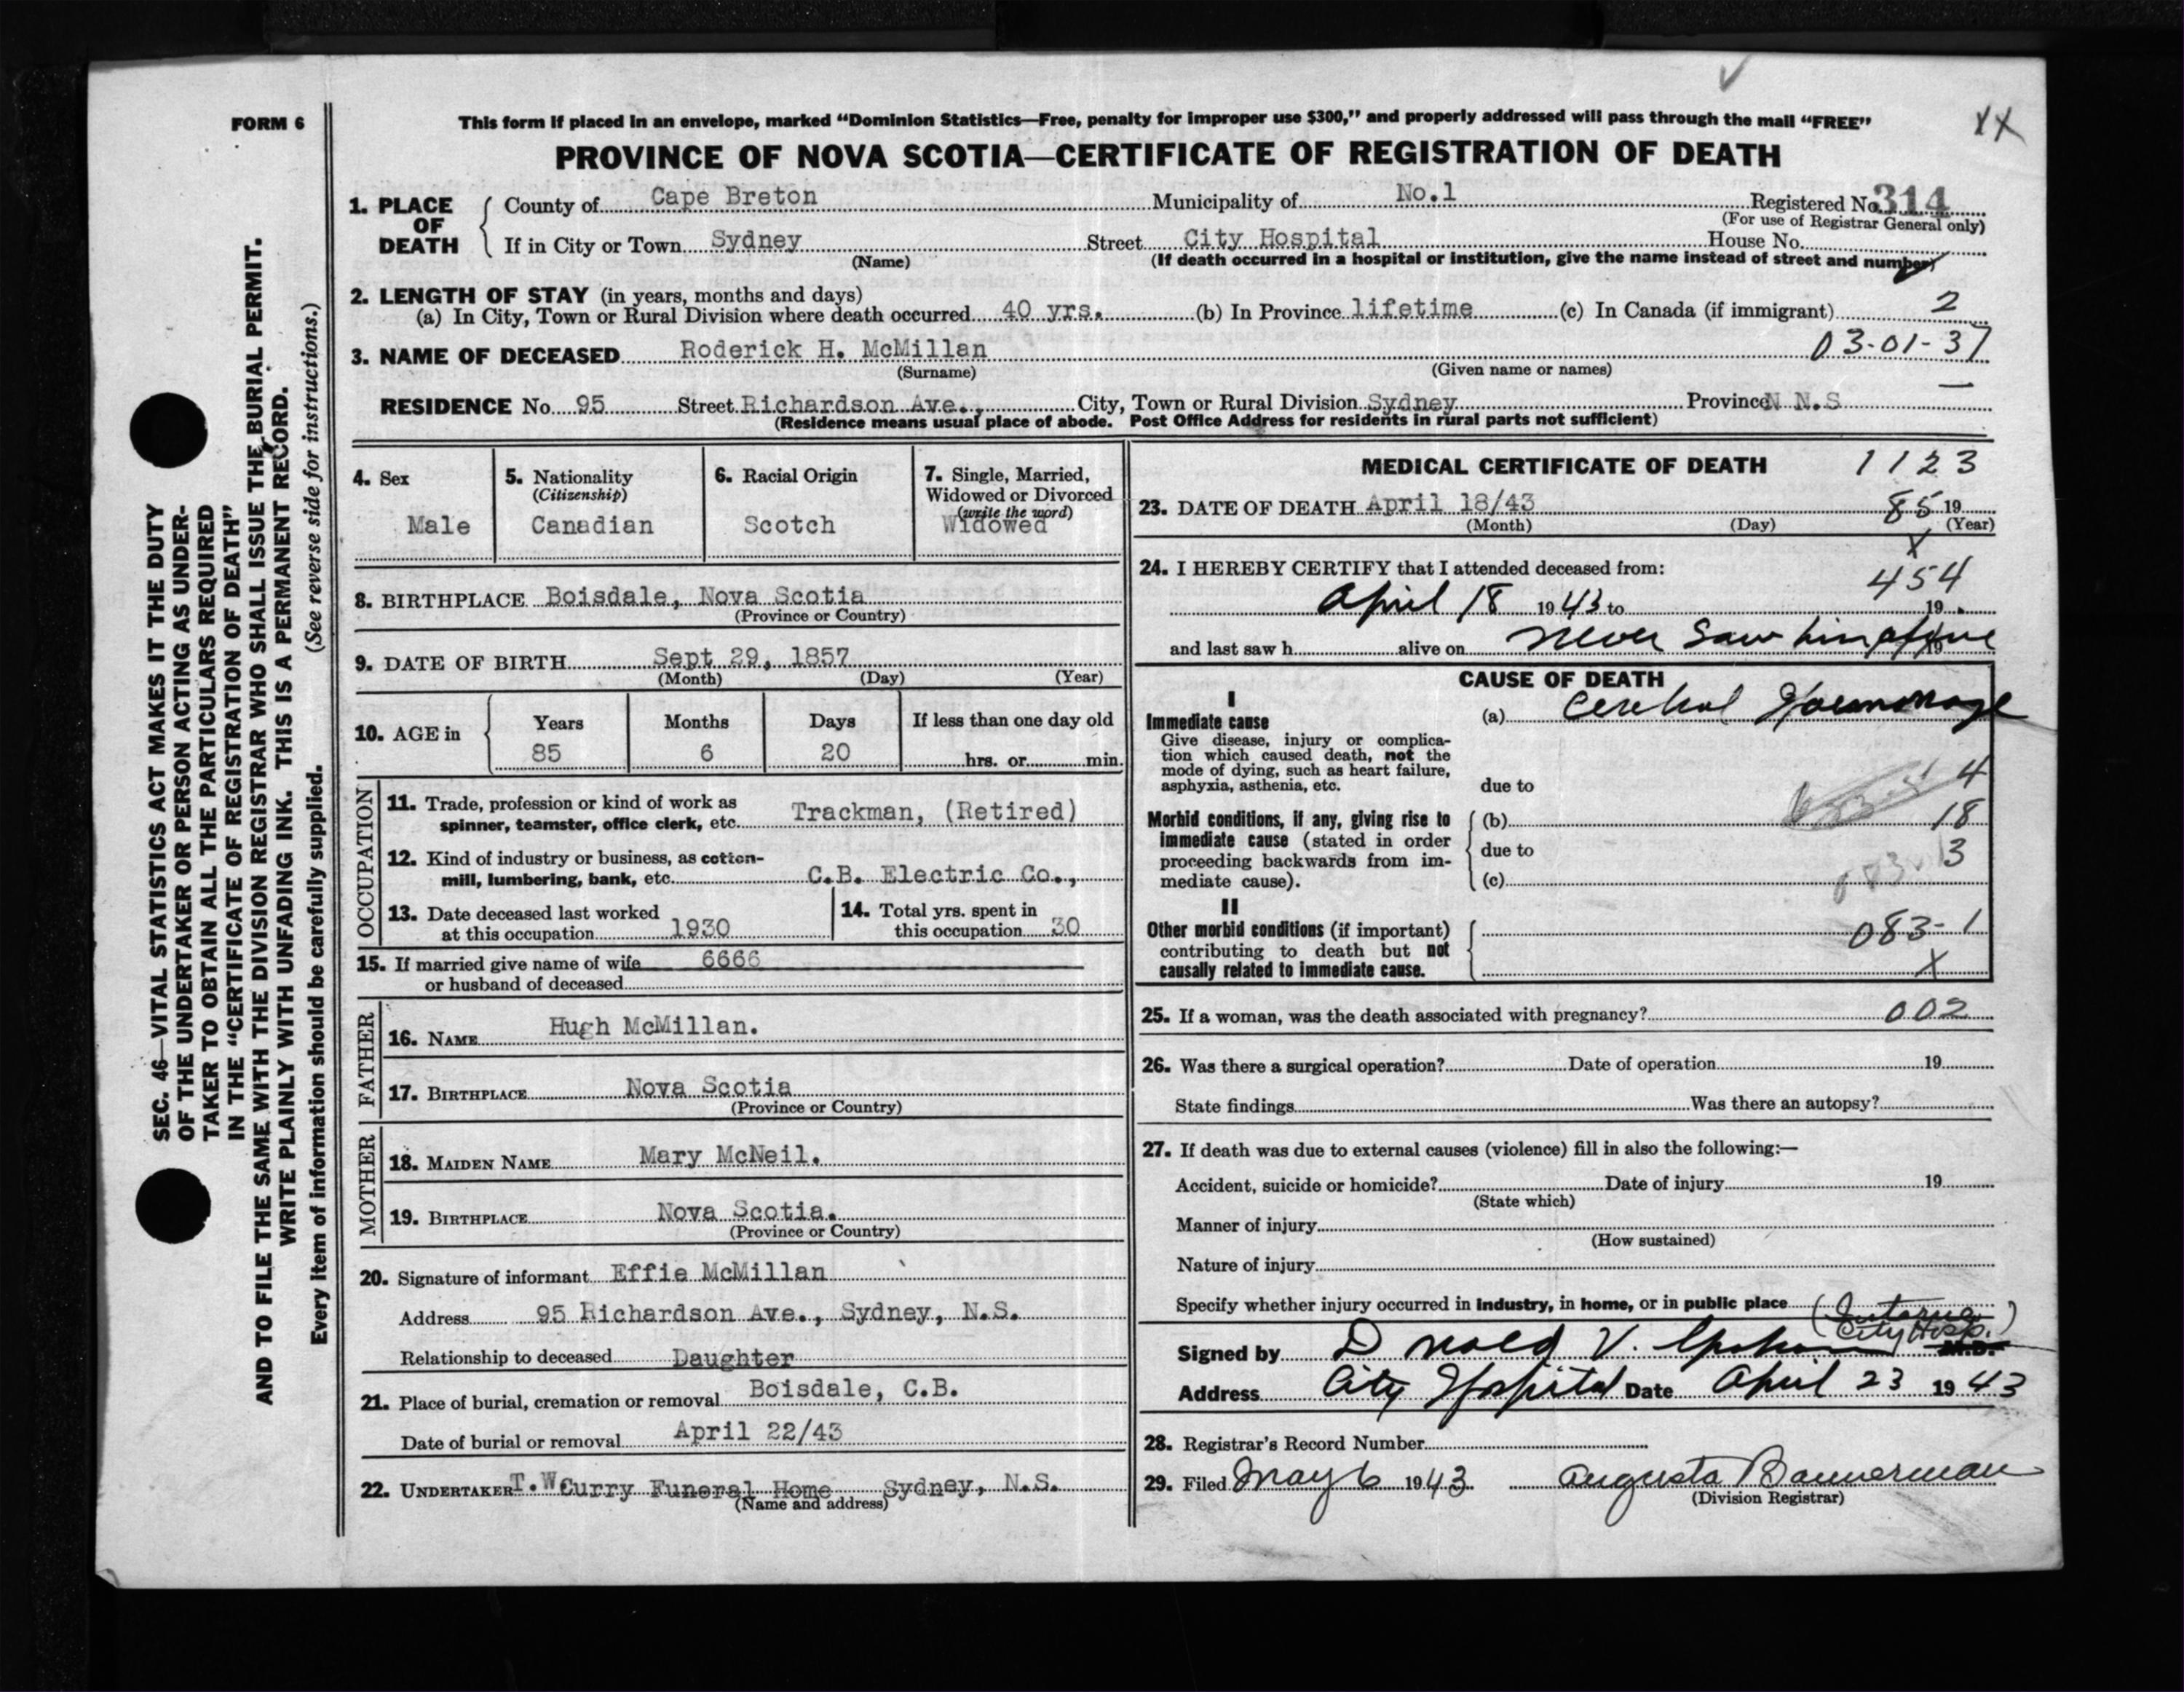 FORM 6
This form if placed in an envelope, marked “Dominion Statistics—Free, penalty for improper use $300,” and properly addressed will pass through the mail “FREE”
XX
PROVINCE OF NOVA SCOTIA—CERTIFICATE OF REGISTRATION OF DEATH
1. PLACE OF DEATH
County of Cape Breton Municipality of No.1 Registered No. 314
(For use of Registrar General only)
If in City or Town Sydney Street City Hospital House No.
(Name) (If death occurred in a hospital or institution, give the name instead of street and number)
2. LENGTH OF STAY (in years, months and days)
(a) In City, Town or Rural Division where death occurred 40 yrs. (b) In Province lifetime (c) In Canada (if immigrant) 2
3. NAME OF DECEASED Roderick H. McMillan 03-01-37
(Surname) (Given name or names)
RESIDENCE No. 95 Street Richardson Ave., City, Town or Rural Division Sydney Province N N.S
(Residence means usual place of abode. Post Office Address for residents in rural parts not sufficient)
4. Sex
Male
5. Nationality
(Citizenship)
Canadian
6. Racial Origin
Scotch
7. Single, Married,
Widowed or Divorced
(write the word)
Widowed
8. BIRTHPLACE Boisdale, Nova Scotia
(Province or Country)
9. DATE OF BIRTH Sept 29, 1857
(Month) (Day) (Year)
10. AGE in
Years Months Days If less than one day old
85 6 20 hrs. or min.
OCCUPATION
11. Trade, profession or kind of work as
spinner, teamster, office clerk, etc. Trackman, (Retired)
12. Kind of industry or business, as cotton-
mill, lumbering, bank, etc. C.B. Electric Co.,
13. Date deceased last worked
at this occupation 1930
14. Total yrs. spent in
this occupation 30
15. If married give name of wife 6666
or husband of deceased
FATHER
16. NAME Hugh McMillan.
17. BIRTHPLACE Nova Scotia
(Province or Country)
MOTHER
18. MAIDEN NAME Mary McNeil.
19. BIRTHPLACE Nova Scotia.
(Province or Country)
20. Signature of informant Effie McMillan
Address 95 Richardson Ave., Sydney, N.S.
Relationship to deceased Daughter
21. Place of burial, cremation or removal Boisdale, C.B.
Date of burial or removal April 22/43
22. UNDERTAKER T.W Curry Funeral Home Sydney, N.S.
(Name and address)
MEDICAL CERTIFICATE OF DEATH 1123
23. DATE OF DEATH April 18/43 85 19
(Month) (Day) (Year)
X
24. I HEREBY CERTIFY that I attended deceased from:
454
April 18 1943 to 19
and last saw h alive on never saw him alive 19
CAUSE OF DEATH
I
Immediate cause
Give disease, injury or complica-
tion which caused death, not the
mode of dying, such as heart failure,
asphyxia, asthenia, etc.
(a) Cerebral Haemorrage
due to 4
Morbid conditions, if any, giving rise to
immediate cause (stated in order
proceeding backwards from im-
mediate cause).
(b) 18
due to 3
(c)
II
Other morbid conditions (if important)
contributing to death but not
causally related to immediate cause.
083-1
X
25. If a woman, was the death associated with pregnancy? 002
26. Was there a surgical operation? Date of operation 19
State findings Was there an autopsy?
27. If death was due to external causes (violence) fill in also the following:—
Accident, suicide or homicide? Date of injury 19
(State which)
Manner of injury
(How sustained)
Nature of injury
Specify whether injury occurred in industry, in home, or in public place
(Interne
City Hosp.)
Signed by D nald V. M.D.
Address City Hospital Date April 23 1943
28. Registrar's Record Number
29. Filed May 6 1943 Augusta Bannerman
(Division Registrar)
SEC. 46—VITAL STATISTICS ACT MAKES IT THE DUTY
OF THE UNDERTAKER OR PERSON ACTING AS UNDER-
TAKER TO OBTAIN ALL THE PARTICULARS REQUIRED
IN THE “CERTIFICATE OF REGISTRATION OF DEATH”
AND TO FILE THE SAME WITH THE DIVISION REGISTRAR WHO SHALL ISSUE THE BURIAL PERMIT.
WRITE PLAINLY WITH UNFADING INK. THIS IS A PERMANENT RECORD.
Every item of information should be carefully supplied. (See reverse side for instructions.)